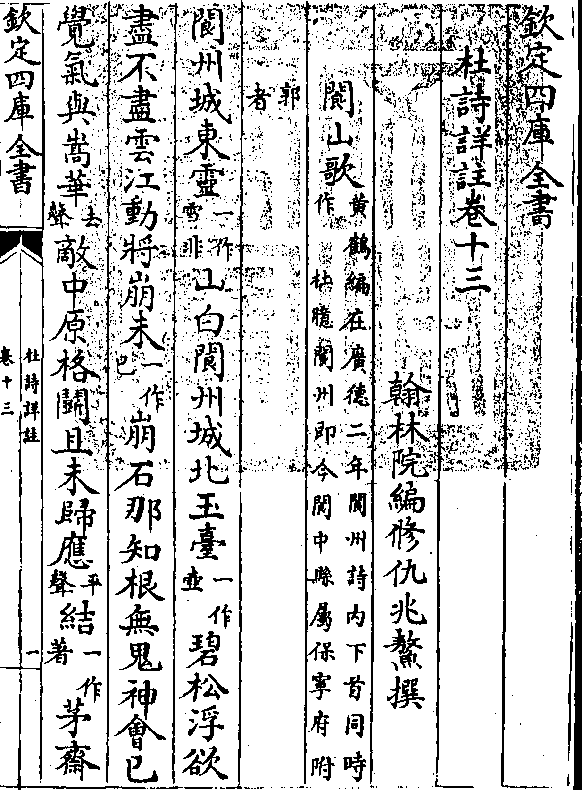 欽定四庫全書
杜詩詳註卷十三
翰林院編修仇兆鰲撰
閬山歌黃鶴編在廣德二年閬州詩内下首同時作 杜臆閬州即今閬中縣屬保寧府附
郭者
閬州城東靈一作雪非山白閬州城北玉臺一作壺碧松浮欲
盡不盡雲江動將崩未一作已崩石那知根無鬼神會已
覺氣與嵩華去聲敵中原格鬭且未歸應平聲結一作著茅齋
欽定四庫全書
杜詩詳註
卷十三
一